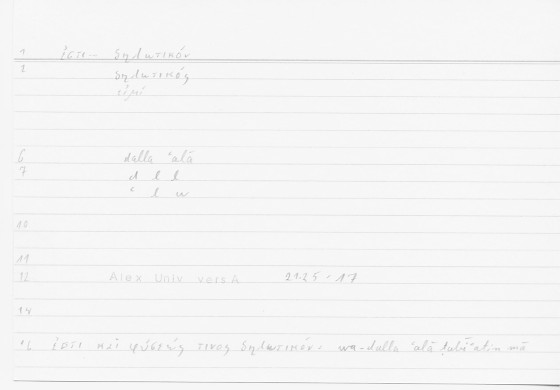 1 ἔστι — δηλωτικόν
2 δηλωτικός
εἰμί
6 dalla ʿalā
7 d l l
ʿ l w
10
11
12 Alex Univ versA 2125 - 17
14
16 ἔστι καὶ φύσεώς τινος δηλωτικόν· wa-dalla ʿalā ṭabīʿatin mā